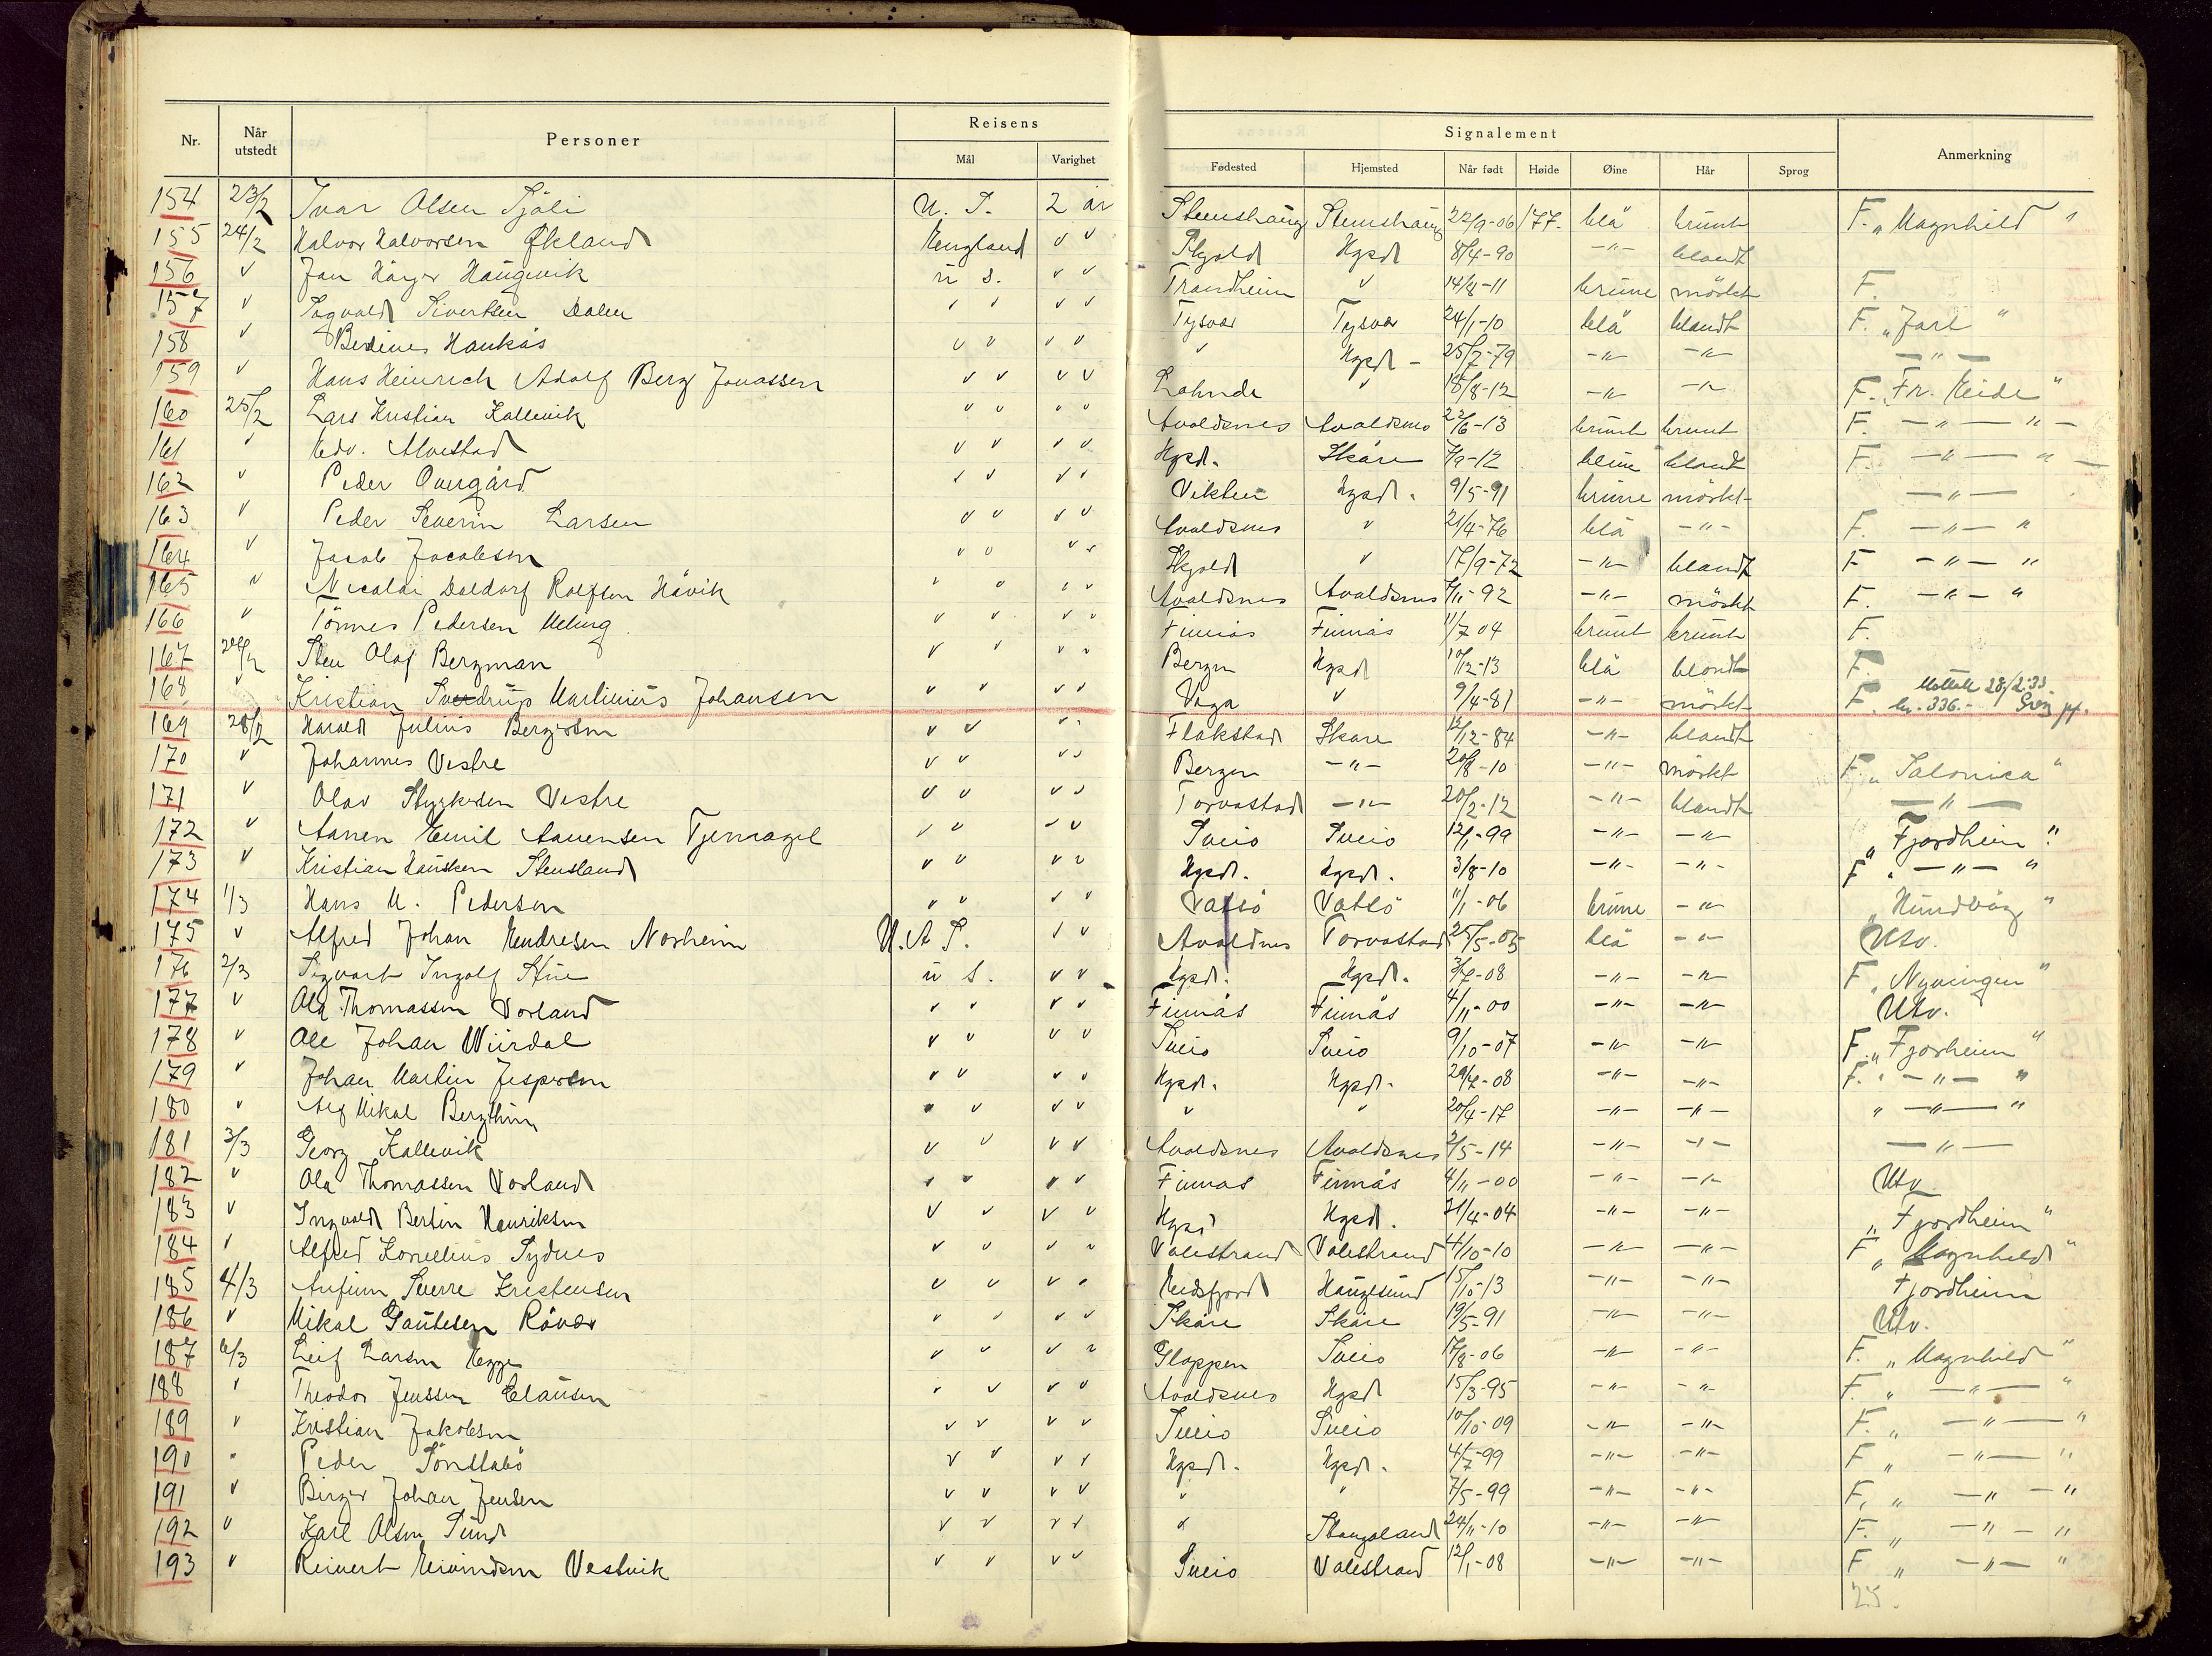 Nr. Når utstedt Personer Reisens Mål Varighet Signalement Fødested Hjemsted Når født Høide Øine Hår Sprog Anmerkning
154 23/2 Ivar Olsen U. S. 2 år Stemshaug Stemshaug 22/9-06 177. blå brunt F. „Magnhild"
155 24/2 Halvor Halvorsen Økland England v v Skjold Hgsd 8/4-90 -"- blondt
156 v Jan Haugevik u s. v v Trondheim v 14/8-11 brune mörkt F.
157 v Sigvald Sivertsen Dalen v v v v Tysvær Tysvær 24/1-10 blå blondt F. „Jarl"
158 v Berdines Haukås v v v v v Hgsd - 25/7-79 -"- -"- -"-
159 v Hans Heinrich Adolf Berg Jonassen v v v v v 18/8-12 -"- -"- F. „Fr. Eide"
160 25/2 Lars Kristian Kallevik v v v v Avaldsnes Avaldsnes 22/6-13 brunt brunt F. -"- "
161 v Edv. Alvestad v v v v Hgsd. Skåre 7/9-12 blondt F. -"- "
162 v Peder Overgård v v v v Hgsd. 9/5-91 brune mörkt -"-
163 v Peder Severin Larsen v v v v Avaldsnes v 21/4-76 blå -"- F. -"- "
164 v Jacob Jacobsen v v v v Skjold v 17/9-72 -"- blondt F -"- "
165 v Nicolai Daldorf Rolfsen Håvik v v v v Avaldsnes Avaldsnes 7/11-92 -"- mörkt F. -"- "
166 v Tönnes Pedersen Meling. v v v v Finnås Finnås 11/7 04 brunt brunt F.
167 26/2 Sten Olaf Bergman v v v v Bergen Hgsd 10/12-13 blå blondt F
168 v Kristian Sverdrup Martinius Johansen v v v v Våga v 9/4-81 -"- mörkt F. Mottatt 28/2.33. kr. 336.-
169 28/2 Harald Julius Bergersen v v v v Flakstad Skare 12/12-84 -"- blondt
170 v Johannes Vestre v v v v Bergen -"- 20/8-10 -"- mörkt F. „Salonica"
171 v Olav Styrksen Vestre v v v v Torvastad -"- 20/2-12 -"- blondt -"-
172 v Aanen Emil Aanensen Tjernagel v v v v Sveio Sveio 12/1-99 -"- -"- „Fjordheim".
173 v Kristian Hausken Stensland v v v v Hgsd. Hgsd. 3/8-10 -"- -"- F „ -"- "
174 1/3 Hans M. Pedersen v v v v Vatsö Vatsö 11/1-06 brune -"- „Hundvåg"
175 v Alfred Johan Endresen Norheim U. A S. v v Avaldnes Torvastad 25/5-05 blå -"- Utv.
176 2/3 Sigvart Ingolf Stue u s. v v Hgsd. Hgsd. 3/7-08 -"- -"- F „Nyvingen"
177 v Ola Thomassen Vorland v v v v Finnås Finnås 4/11-00 -"- -"- Utv.
178 v Ole Johan Wiirdal v v v v Sveio Sveio 9/10-07 -"- -"- F. „Fjorheim"
179 v Johan Martin Jespersen v v v v Hgsd. Hgsd. 29/7-08 -"- -"- F. „ -"- "
180 v Alf Mikal Bergthun v v v v v v 20/4-17 -"- -"- „ -"- "
181 3/3 Georg Kallevik v v v v Avaldsnes Avaldsnes 2/5-14 -"- -"- -"-
182 v Ola Thomassen Vorland v v v v Finnas Finnås 4/11-00 -"- -"- Utv.
183 v Ingvald Bertin Henriksen v v v v Hgsd Hgsd. 21/4-04 -"- -"- „Fjordheim"
184 v Alfred Kornelius Sydnes v v v v Valestrand Valestrand 4/10-10 -"- -"- F „Magnhild"
185 4/3 Anfinn Sverre Kristensen v v v v Eidsfjord Haugesund 15/10-13 -"- -"- Fjordheim
186 v Mikal Gautesen Rövær v v v v Skåre Skåre 19/5-91 -"- -"- Utv.
187 6/3 Leif Larsen Hegge v v v v Gloppen Sveio 17/8-06 -"- -"- F. „Magnhild"
188 v Theodor Jenssen Clausen v v v v Avaldsnes Hgsd 15/3-95 -"- -"- F. „ -"- "
189 v Kristian Jakobsen v v v v Sveio Sveio 10/10-09 -"- -"- F. „ -"- "
190 " Peder Sönstabö v v v v Hgsd. Hgsd. 4/7-99 -"- -"- F „ -"- "
191 v Birger Johan Jensen v v v v v v 7/5-99 -"- -"- F. „ -"- "
192 v Karl Olsen Sund v v v v v Stangaland 24/11-10 -"- -"- F. „ -"- "
193 v Reinert Eivindsen Vestvik v v v v Sveio Valestrand 12/1-08 -"- -"- F „ -"- "
25.